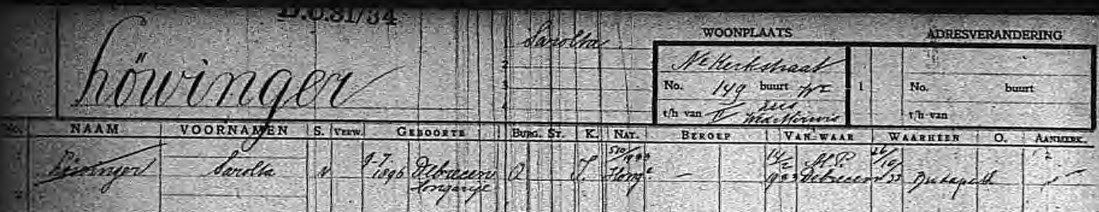 D.O.31/34
Löwinger
Sarolta
WOONPLAATS
ADRESVERANDERING
Nwe Kerkstraat
No. 149 buurt
t/h van
1
No. buurt
t/h van
No. NAAM VOORNAMEN S. VERW. GEBOORTE BURG. ST. K. NAT. BEROEP VAN WAAR WAARHEEN O. AANMERK.
Löwinger Sarolta v 9-7 1896 Debrecen Hongarije O I Hong. — Debrecen Budapest